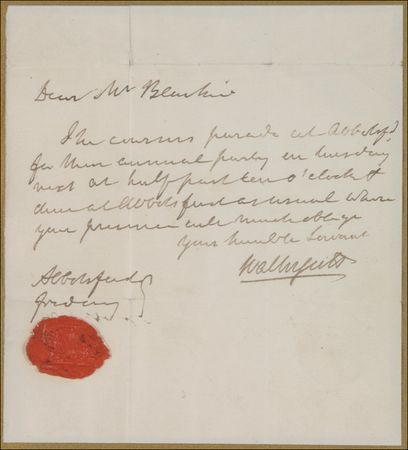 Dear Mr Blaikie
The coursers parade at Abbotsfd
for their annual party on tuesday
next at half past ten o'clock &
dine at Abbotsford as usual where
your presence will much oblige
Your humble Servant
Walter Scott
Abbotsford
friday